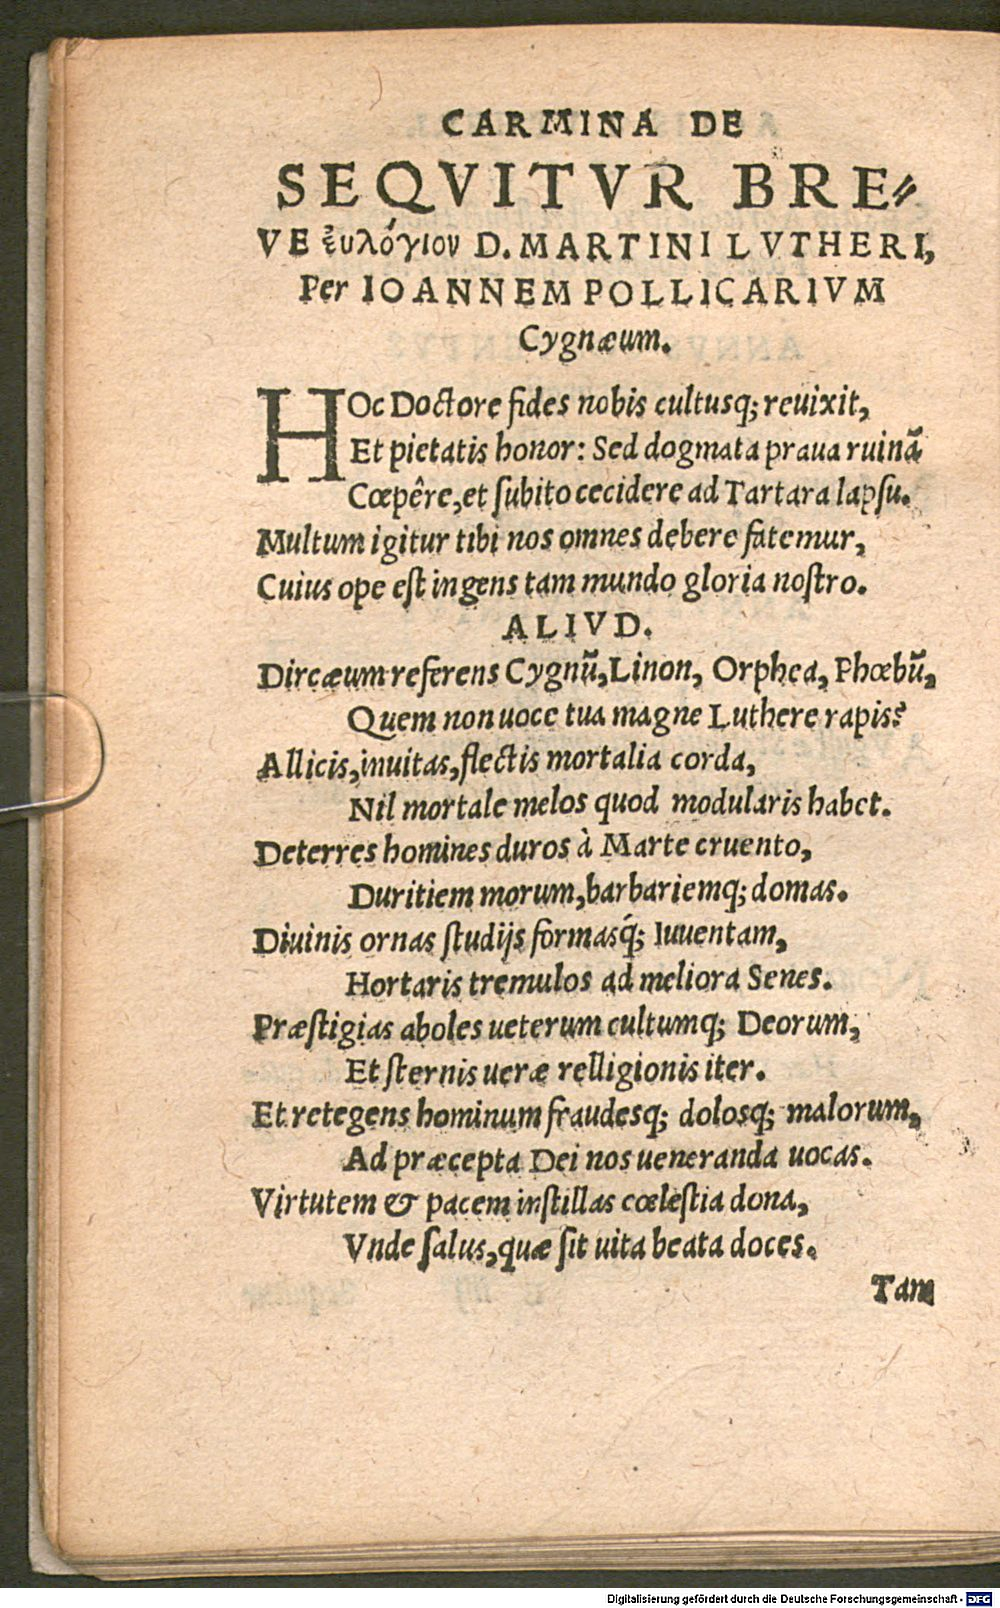 CARMINA DE
SEQVITVR BRE⸗
VE ἐυλόγιον D. MARTINI LVTHERI,
Per IOANNEM POLLICARIVM
Cygnæum.
HOc Doctore fides nobis cultusq; reuixit,
Et pietatis honor: Sed dogmata praua ruinã
Cœpêre, et ſubito cecidere ad Tartara lapſu.
Multum igitur tibi nos omnes debere fatemur,
Cuius ope eſt ingens tam mundo gloria noſtro.
ALIVD.
Dircæum referens Cygnũ, Linon, Orphea, Phœbũ,
Quem non uoce tua magne Luthere rapis?
Allicis, inuitas, flectis mortalia corda,
Nil mortale melos quod modularis habet.
Deterres homines duros à Marte cruento,
Duritiem morum, barbariemq; domas.
Diuinis ornas ſtudijs formasq́; Iuuentam,
Hortaris tremulos ad meliora Senes.
Præſtigias aboles ueterum cultumq; Deorum,
Et ſternis ueræ relligionis iter.
Et retegens hominum fraudesq; dolosq; malorum,
Ad præcepta Dei nos ueneranda uocas.
Virtutem & pacem inſtillas cœleſtia dona,
Vnde ſalus, quæ ſit uita beata doces.
Tam
Digitalisierung gefördert durch die Deutsche Forschungsgemeinschaft - DFG